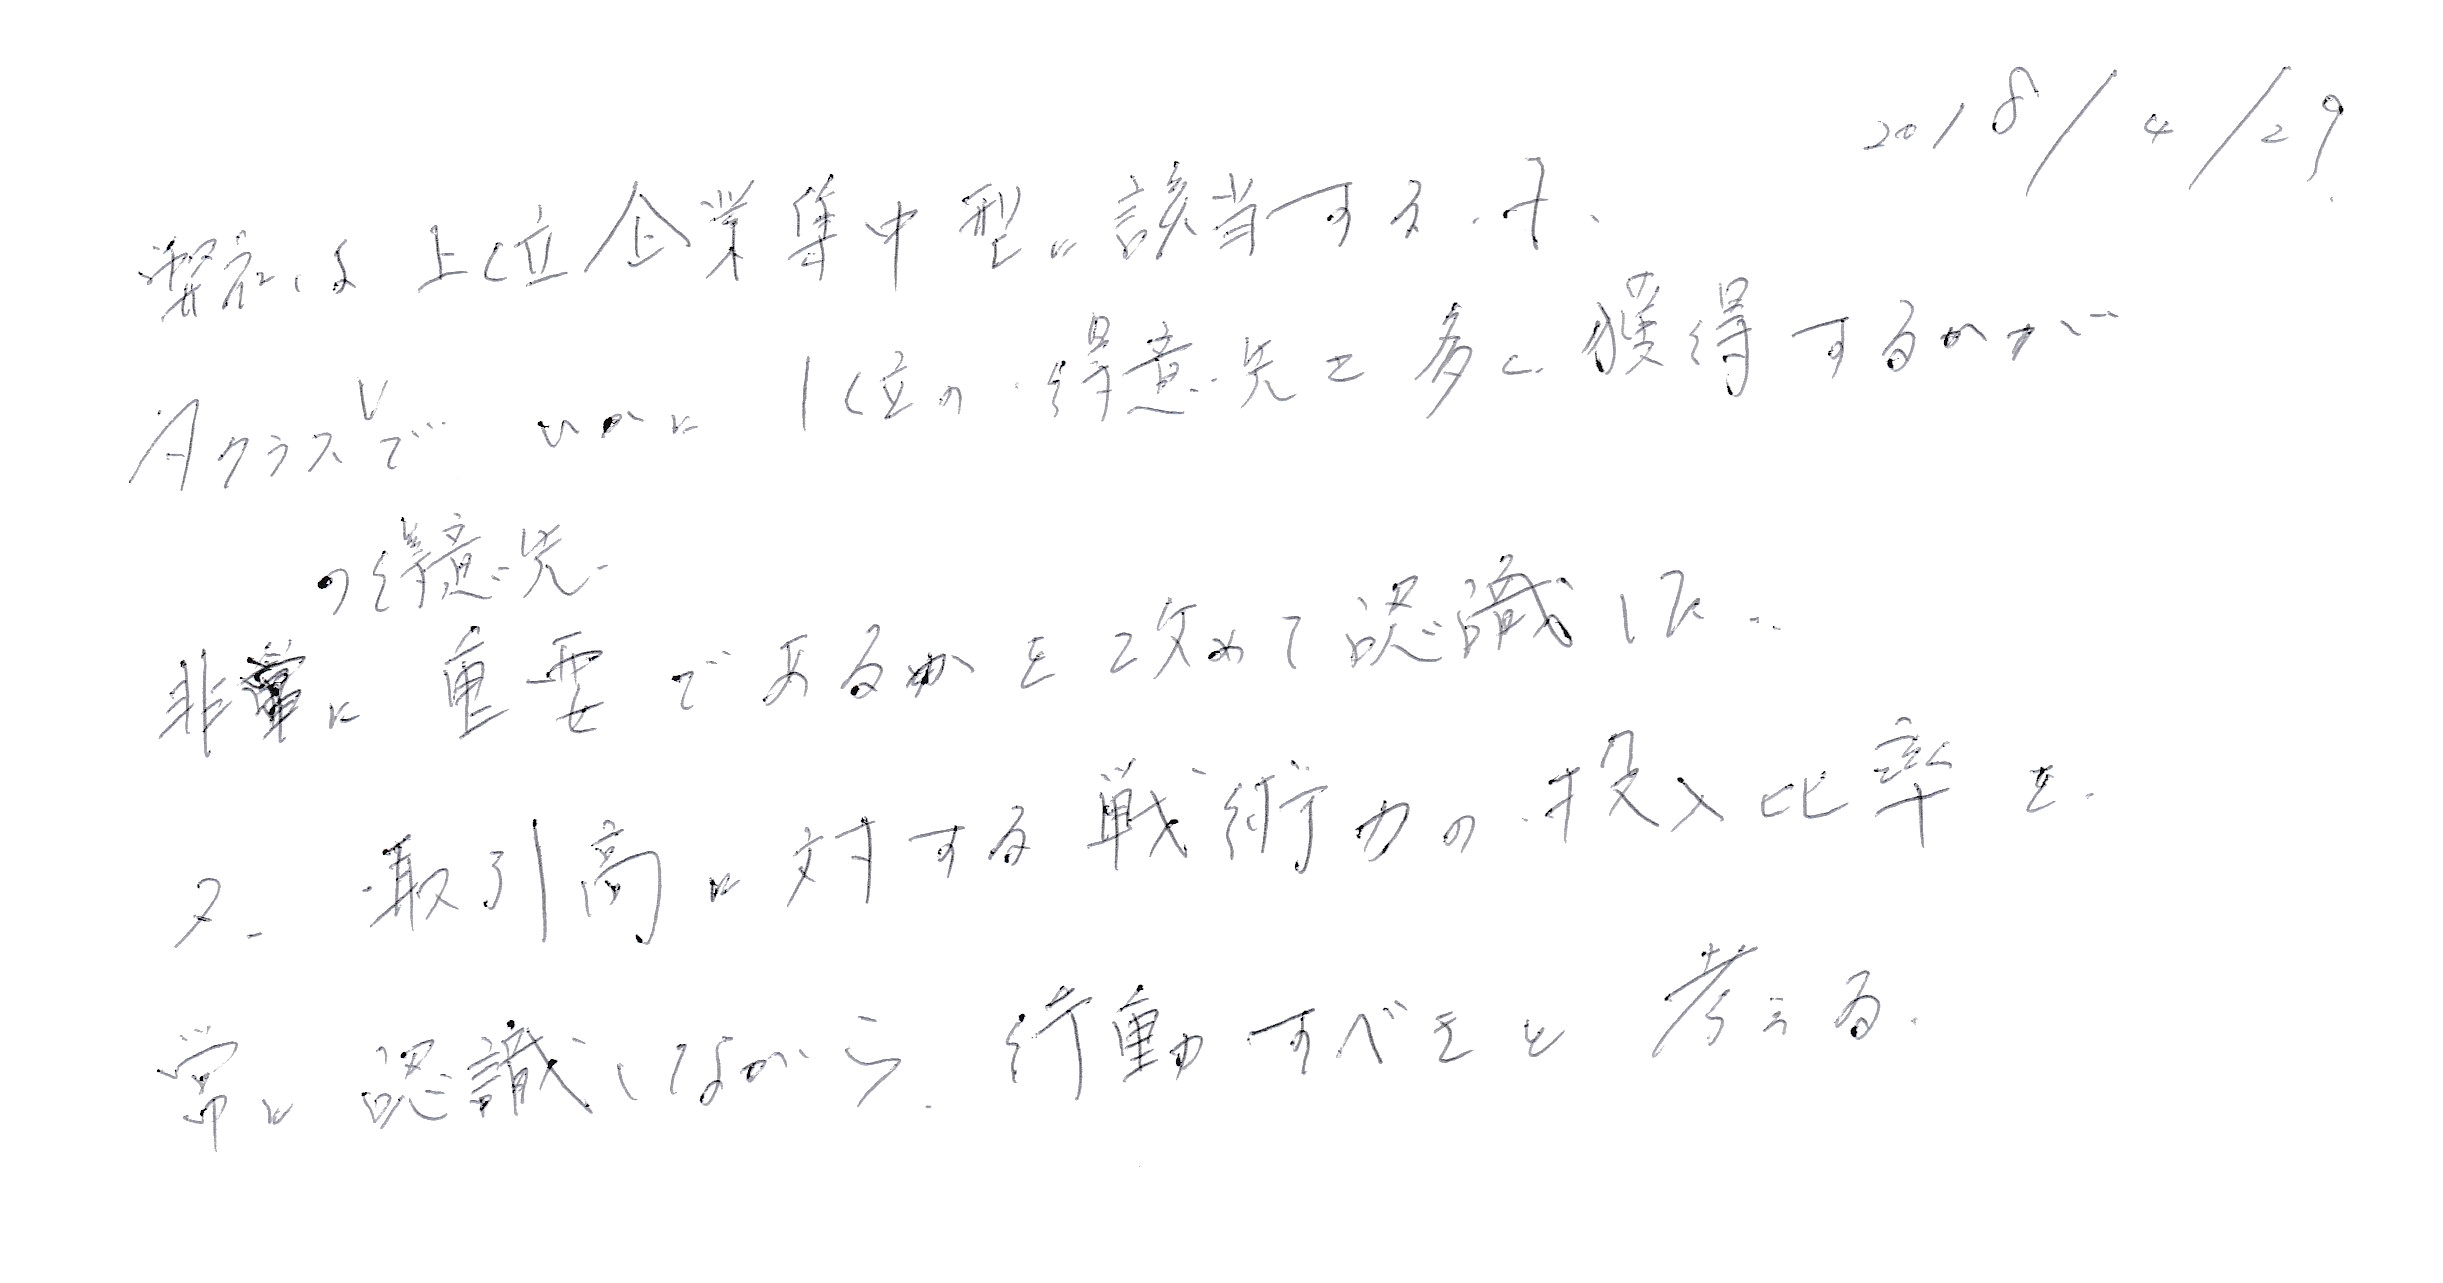 2018/4/29
弊社は上位企業集中型に該当する.
Aクラスで いかに 1位の得意先を多く獲得するかが
の得意先
非常に重要であるかを改めて認識した.
又、取引高に対する戦術力の投入比率を
常に認識しながら、行動すべきと考える.